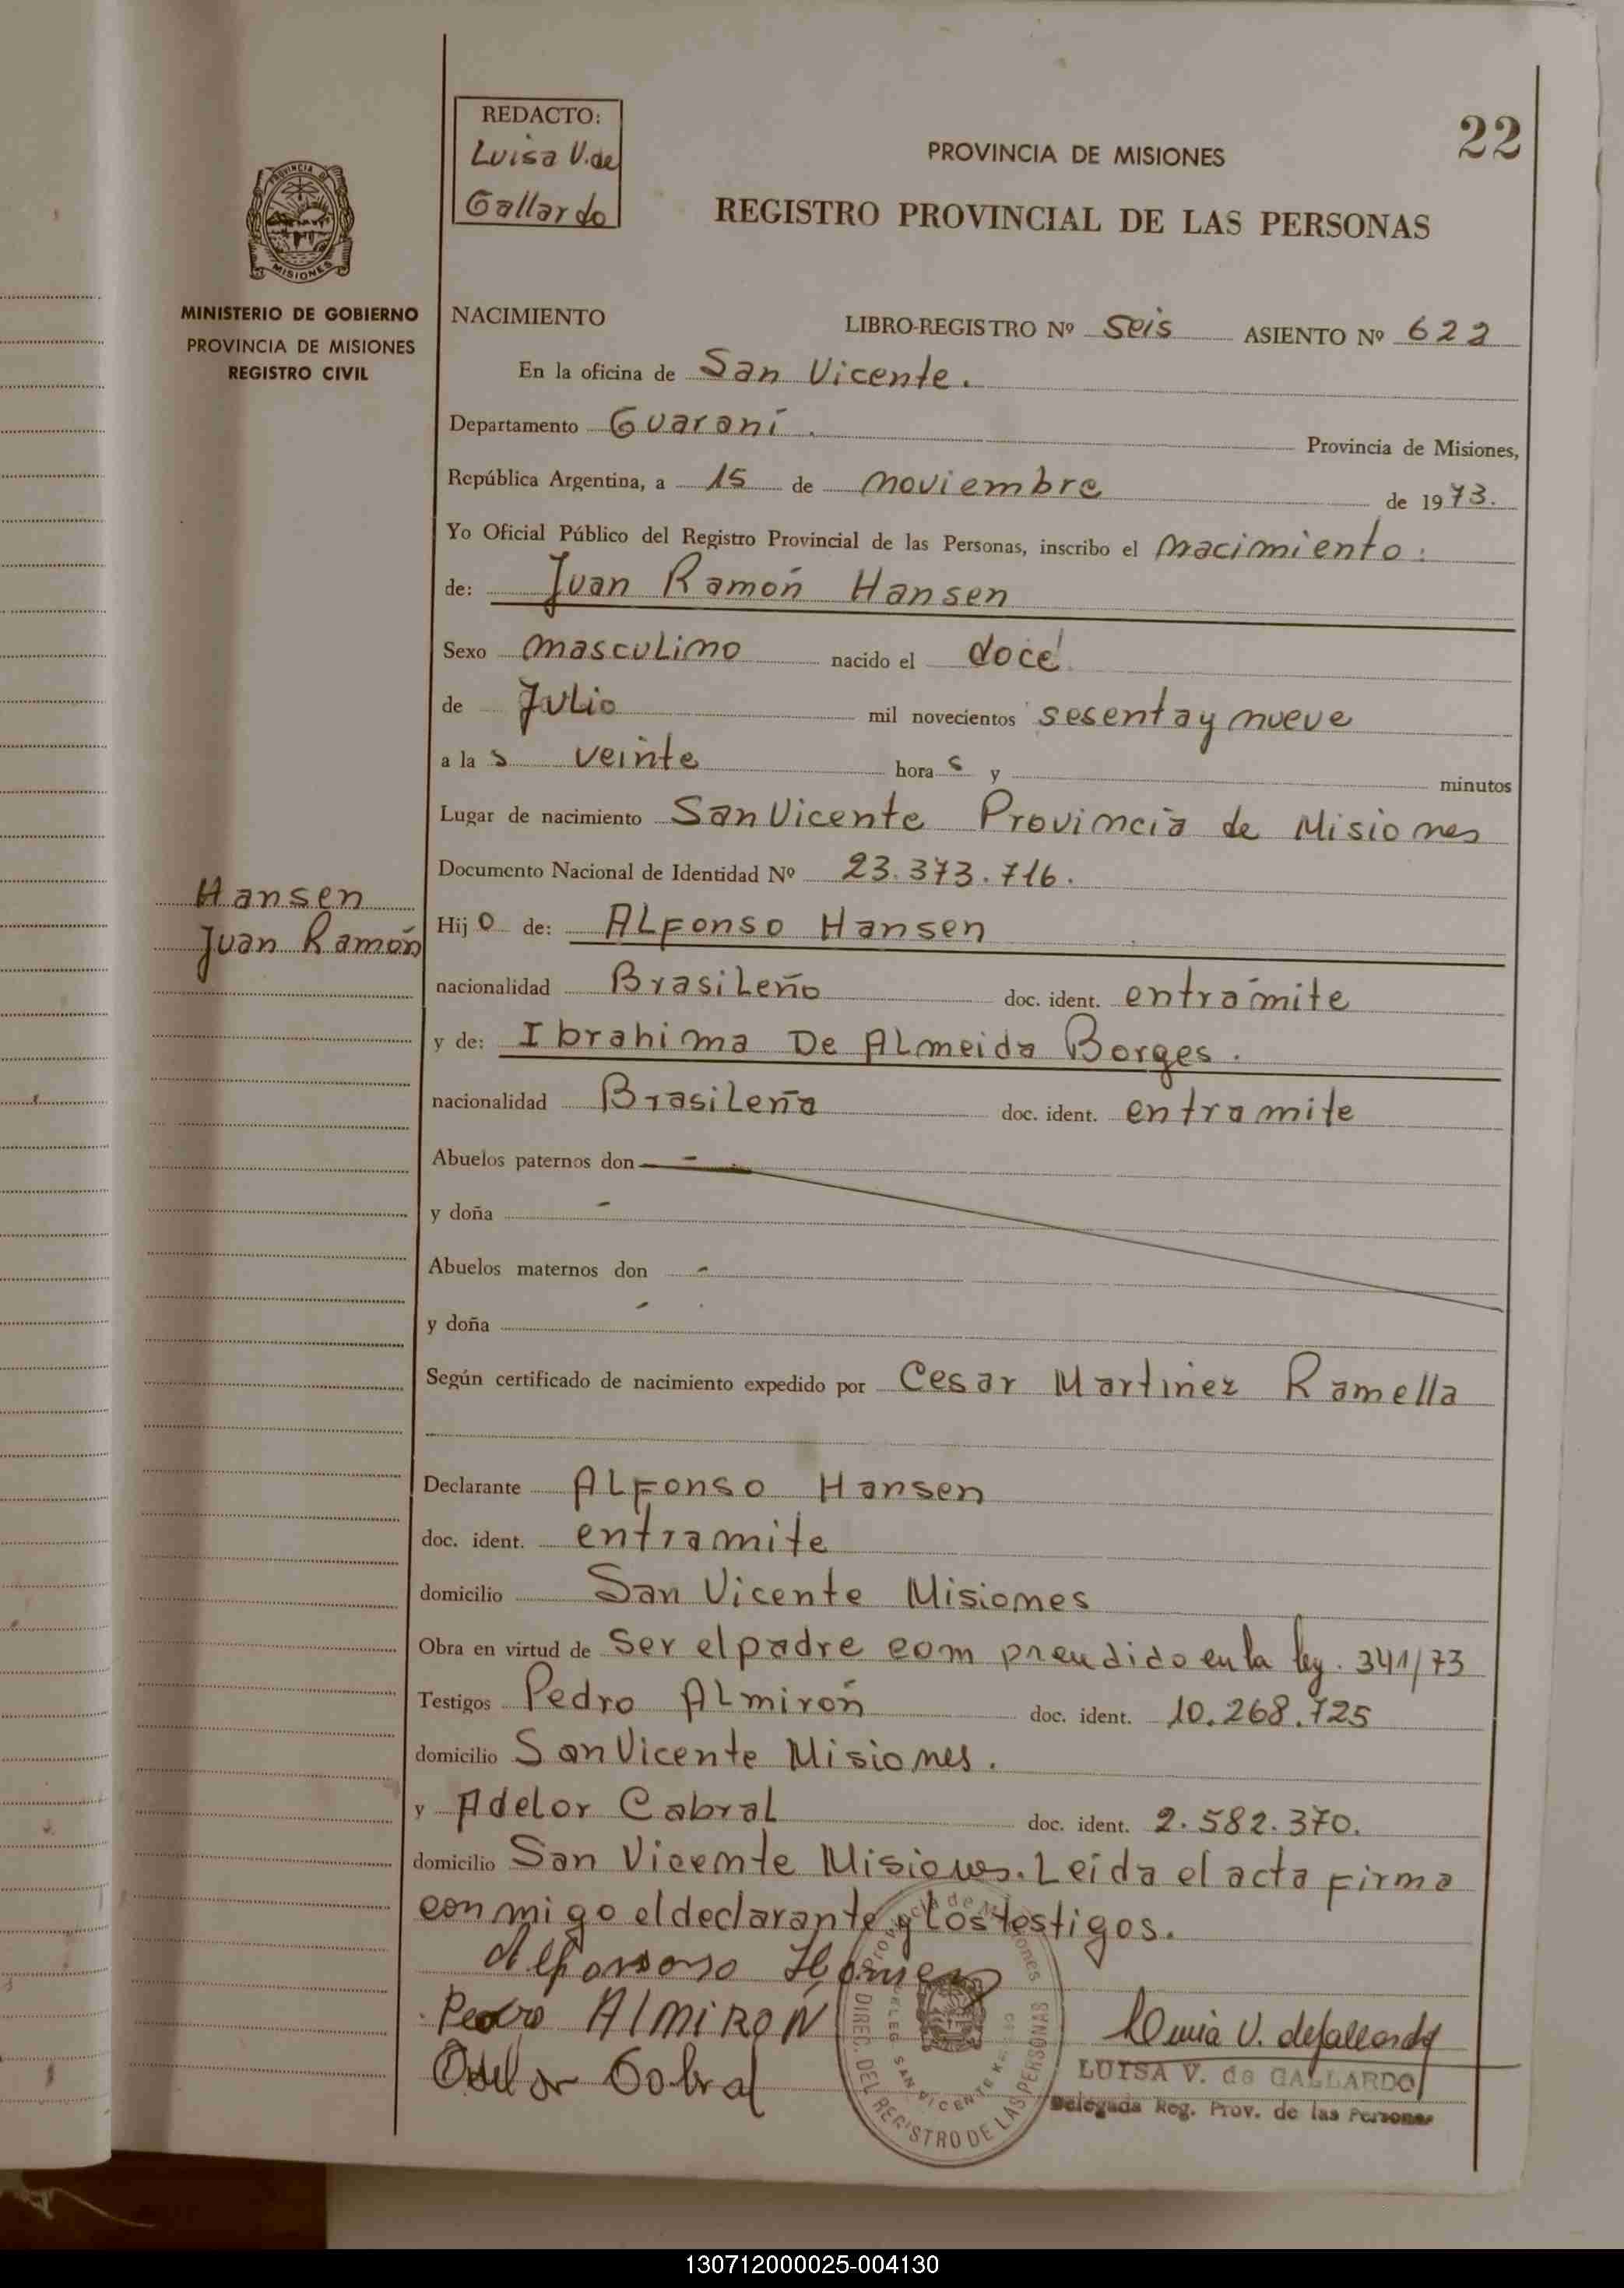 22
REDACTO:
Luisa V. de
Gallardo
PROVINCIA DE MISIONES
REGISTRO PROVINCIAL DE LAS PERSONAS
PROVINCIA DE
MISIONES
MINISTERIO DE GOBIERNO
PROVINCIA DE MISIONES
REGISTRO CIVIL
NACIMIENTO LIBRO-REGISTRO Nº seis ASIENTO Nº 622
En la oficina de San Vicente.
Departamento Guaraní. Provincia de Misiones,
República Argentina, a 15 de noviembre de 1973.
Yo Oficial Público del Registro Provincial de las Personas, inscribo el nacimiento:
de: Juan Ramón Hansen
Sexo masculino nacido el doce
de Julio mil novecientos sesenta y nueve
a la s veinte hora s y minutos
Lugar de nacimiento San Vicente Provincia de Misiones
Documento Nacional de Identidad Nº 23.373.716.
Hansen
Juan Ramón
Hijo de: ALFonso Hansen
nacionalidad BrasiLeño doc. ident. entramite
y de: Ibrahima De ALmeida Borges.
nacionalidad BrasiLeña doc. ident. entramite
Abuelos paternos don -
y doña -
Abuelos maternos don -
y doña -
Según certificado de nacimiento expedido por Cesar Martinez Ramella
Declarante ALFonso Hansen
doc. ident. entramite
domicilio San Vicente Misiones
Obra en virtud de ser el padre comprendido en la ley. 341/73
Testigos Pedro ALmirón doc. ident. 10.268.725
domicilio San Vicente Misiones.
y Adelor CabraL doc. ident. 2.582.370.
domicilio San Vicente Misiones. Leída el acta Firma
conmigo el declarante y Los testigos.
Pedro AlMiRON
LUISA V. de GALLARDO
Delegada Reg. Prov. de las Personas
Provincia de Misiones
DIREC. DEL REGISTRO DE LAS PERSONAS
SAN VICENTE
130712000025-004130